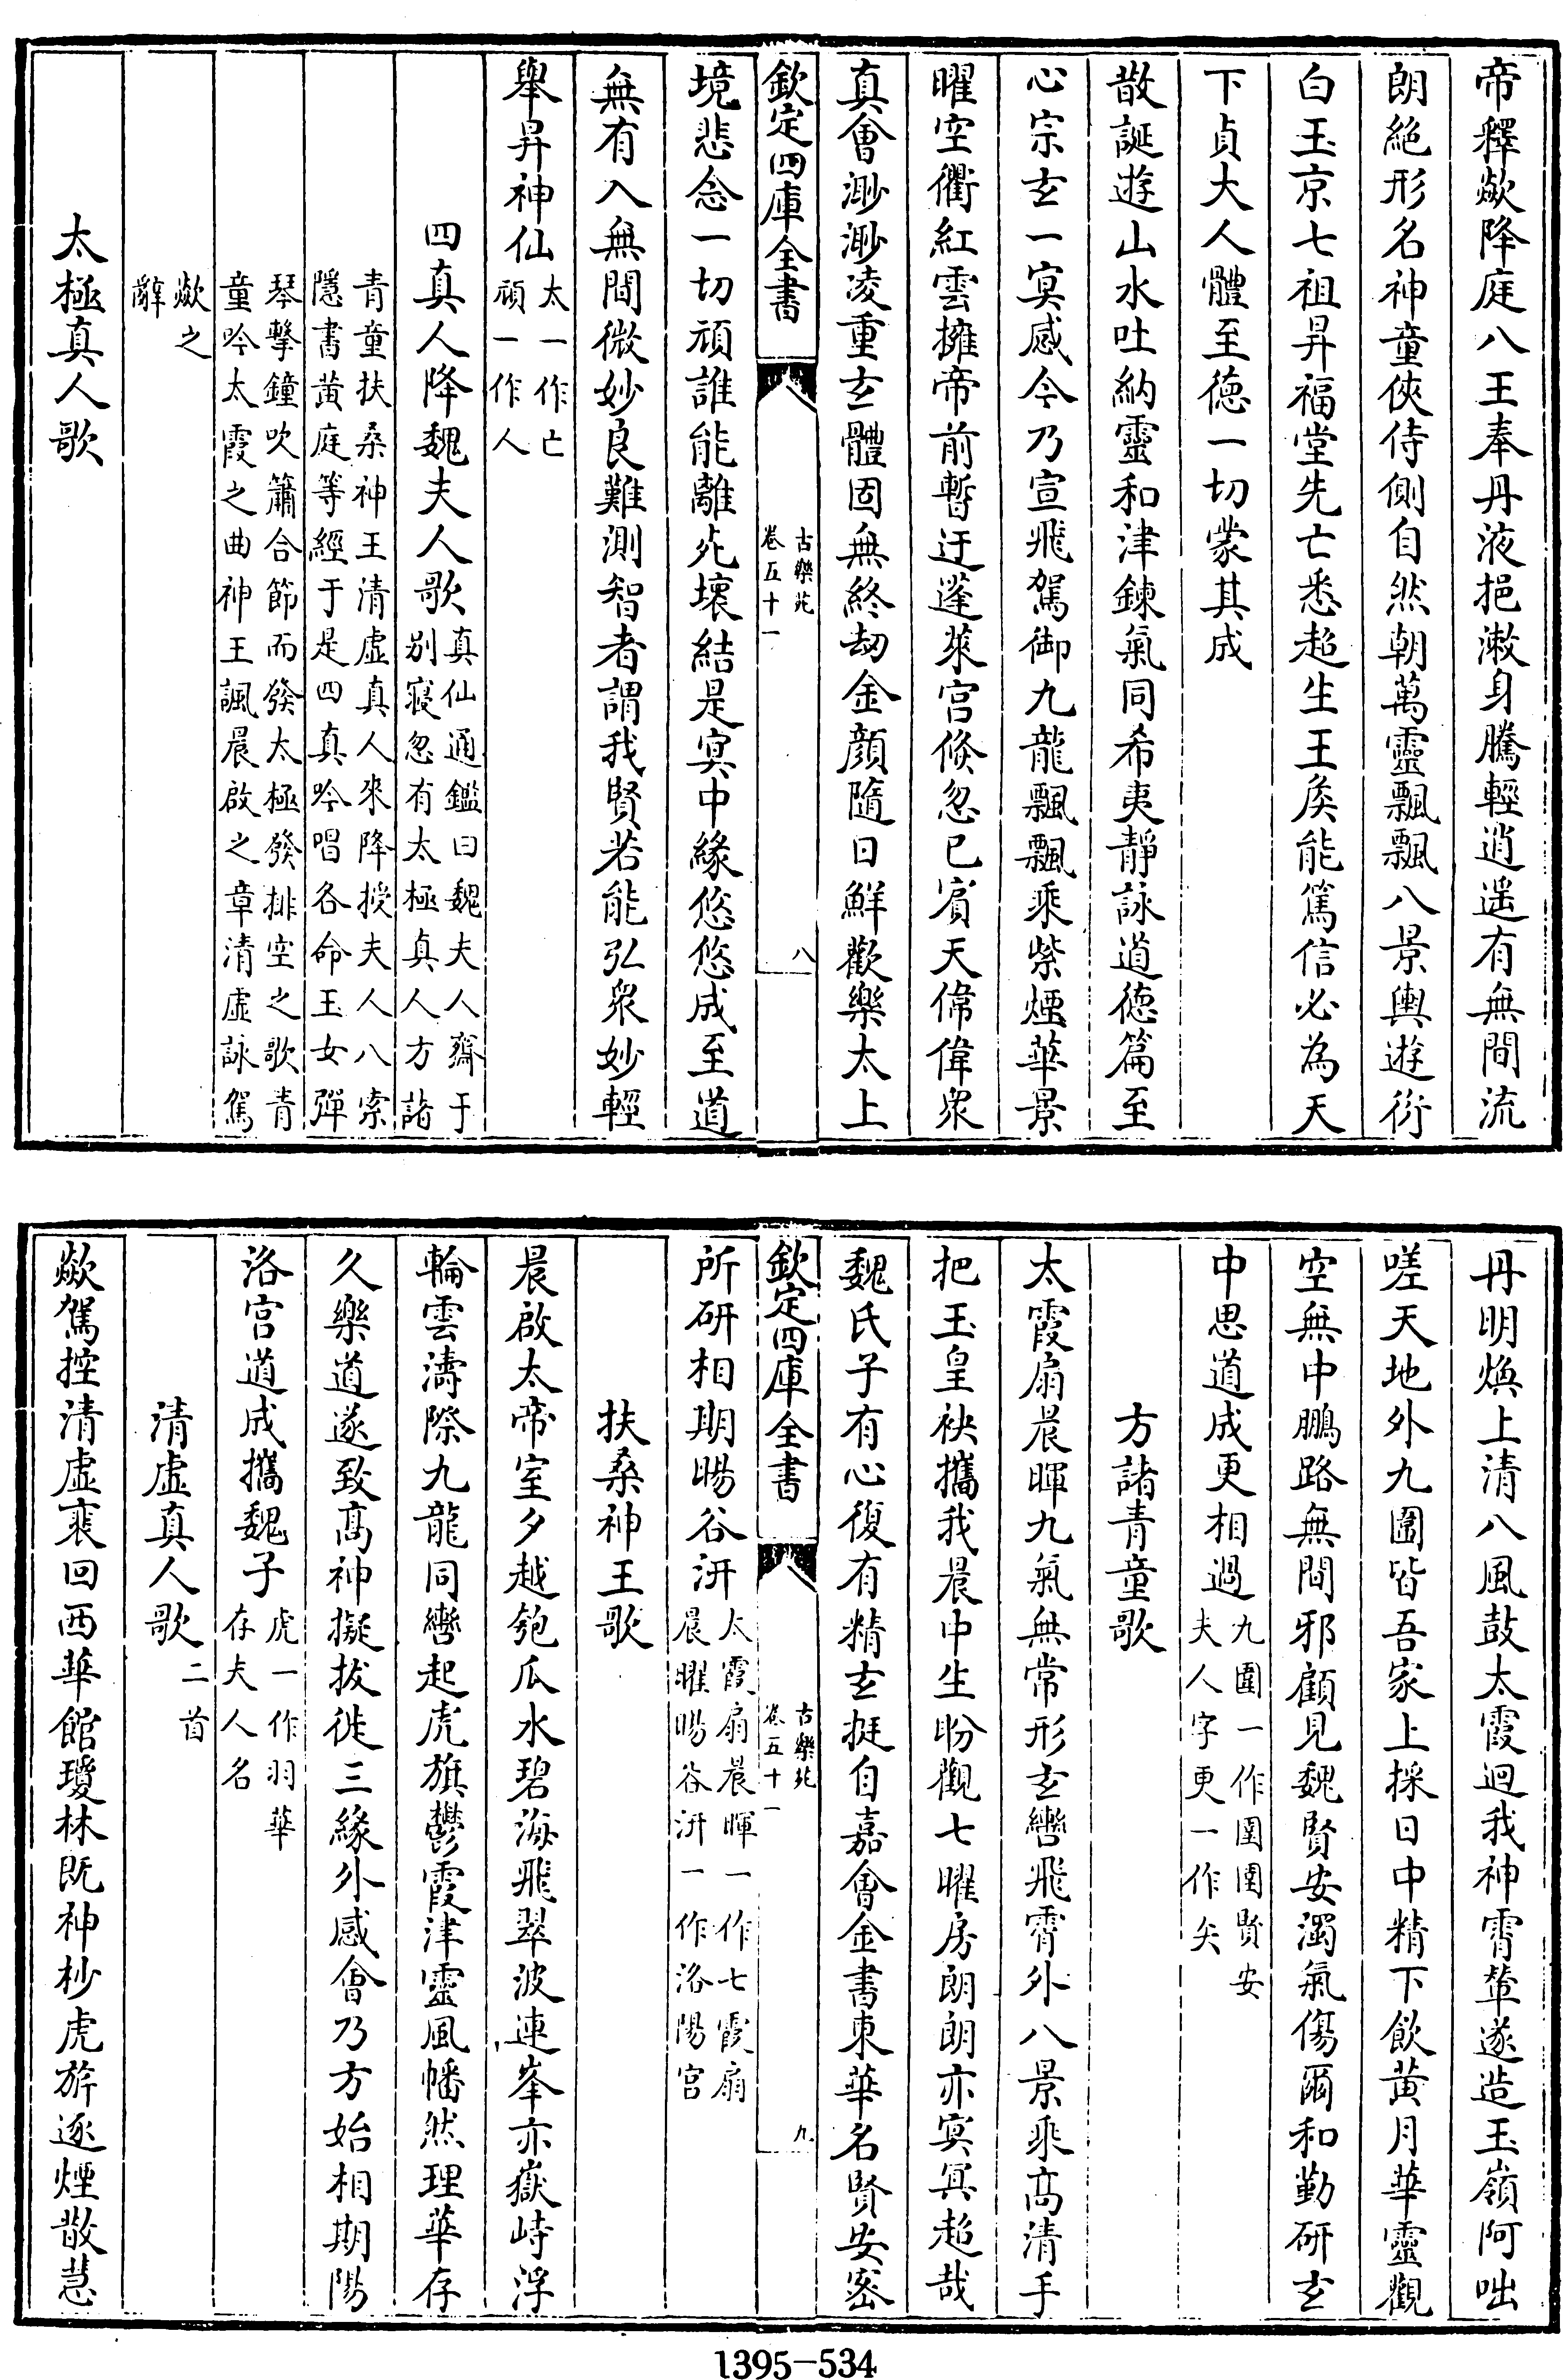 帝釋歘降庭八王奉丹液挹漱身騰輕逍遥有無間流
朗絶形名神童俠侍側自然朝萬靈飄飄八景輿遊衍
白玉京七祖昇福堂先亡悉超生王矦能篤信必為天
下貞大人體至德一切蒙其成
散誕遊山水吐納靈和津鍊氣同希夷靜詠道德篇至
心宗玄一冥感今乃宣飛駕御九龍飄飄乘紫煙華景
曜空衢紅雲擁帝前暫迂蓬萊宮倐忽已賔天偉偉衆
真會渺渺凌重玄體固無終劫金顔隨日鮮歡樂太上
欽定四庫全書
古樂苑
卷五十一
八
境悲念一切頑誰能離死壞結是冥中緣悠悠成至道
無有入無間微妙良難測智者謂我賢若能弘衆妙輕
舉昇神仙
太一作亡
頑一作人
四真人降魏夫人歌
真仙通鑑曰魏夫人齋于
别寢忽有太極真人方諸
青童扶桑神王清虛真人來降授夫人八索
隱書黃庭等經于是四真吟唱各命玉女彈
琴擊鐘吹簫合節而發太極發排空之歌青
童吟太霞之曲神王諷晨啟之章清虛詠駕
歘之
辭
太極真人歌
丹明煥上清八風鼓太霞迴我神霄輦遂造玉嶺阿咄
嗟天地外九圍皆吾家上採日中精下飲黃月華靈觀
空無中鵬路無間邪顧見魏賢安濁氣傷爾和勤研玄
中思道成更相過
九圍一作圍圍賢安
夫人字更一作矢
方諸青童歌
太霞扇晨暉九氣無常形玄轡飛霄外八景乘高清手
把玉皇袂攜我晨中生盼觀七曜房朗朗亦冥冥超哉
魏氏子有心復有精玄挺自嘉會金書東華名賢安密
欽定四庫全書
古樂苑
卷五十一
九
所研相期暘谷汧
太霞扇晨暉一作七霞扇
晨曜暘谷汧一作洛陽宮
扶桑神王歌
晨啟太帝室夕越匏瓜水碧海飛翠波連峯亦嶽峙浮
輪雲濤際九龍同轡起虎旗鬱霞津靈風幡然理華存
久樂道遂致高神擬拔徙三緣外感會乃方始相期陽
洛宮道成攜魏子
虎一作羽華
存夫人名
清虛真人歌
二首
歘駕控清虛裵回西華館瓊林既神杪虎旂逐煙散慧
1395-534